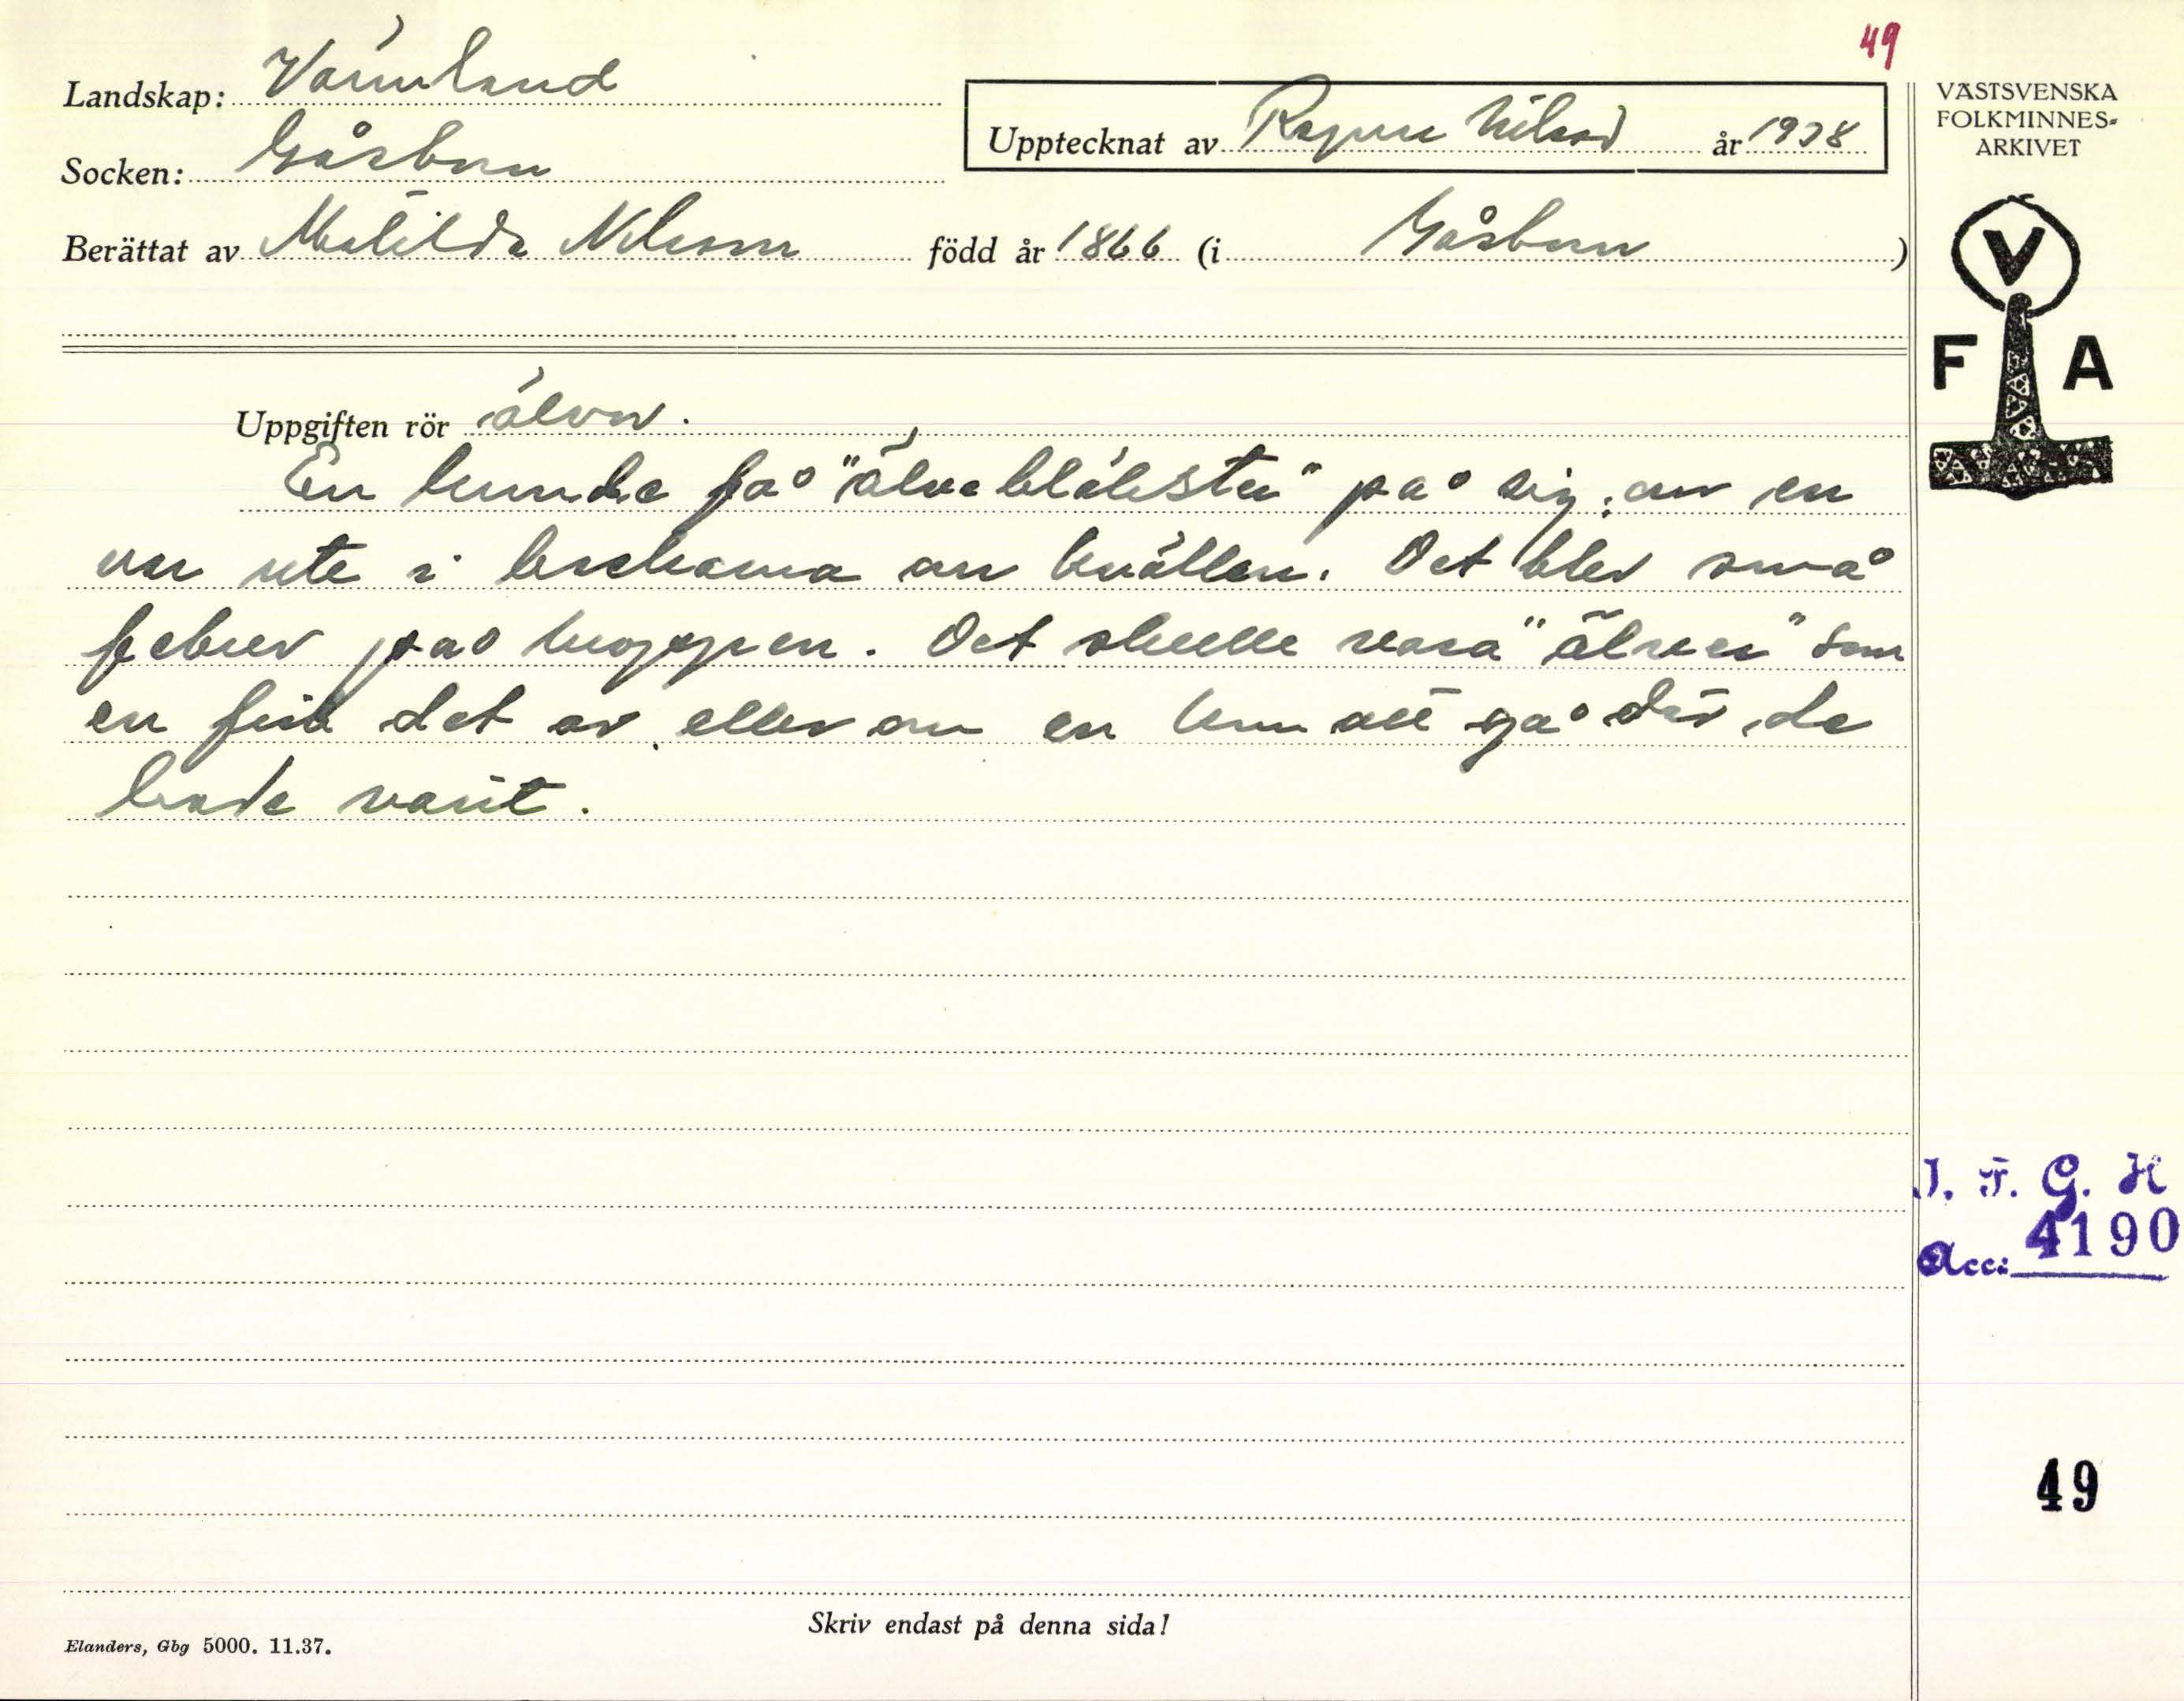 49
Landskap: Värmland
Socken: Gåsborn
Upptecknat av Ragnar Nilsson år 1938
Berättat av Matilda Nilsson född år 1866 (i Gåsborn)
VÄSTSVENSKA
FOLKMINNES-
ARKIVET
V
F A
Uppgiften rör älvor.
En kunde få "älvablåst" på sig, om en
var ute i backarna om kvällen. Det blev små
på kroppen. Det skulle vara "älver" som
en fick det av, eller om en kom att gå där de
hade varit.
I. F. G. H
Acc: 4190
49
Skriv endast på denna sida!
Elanders, Gbg 5000. 11.37.